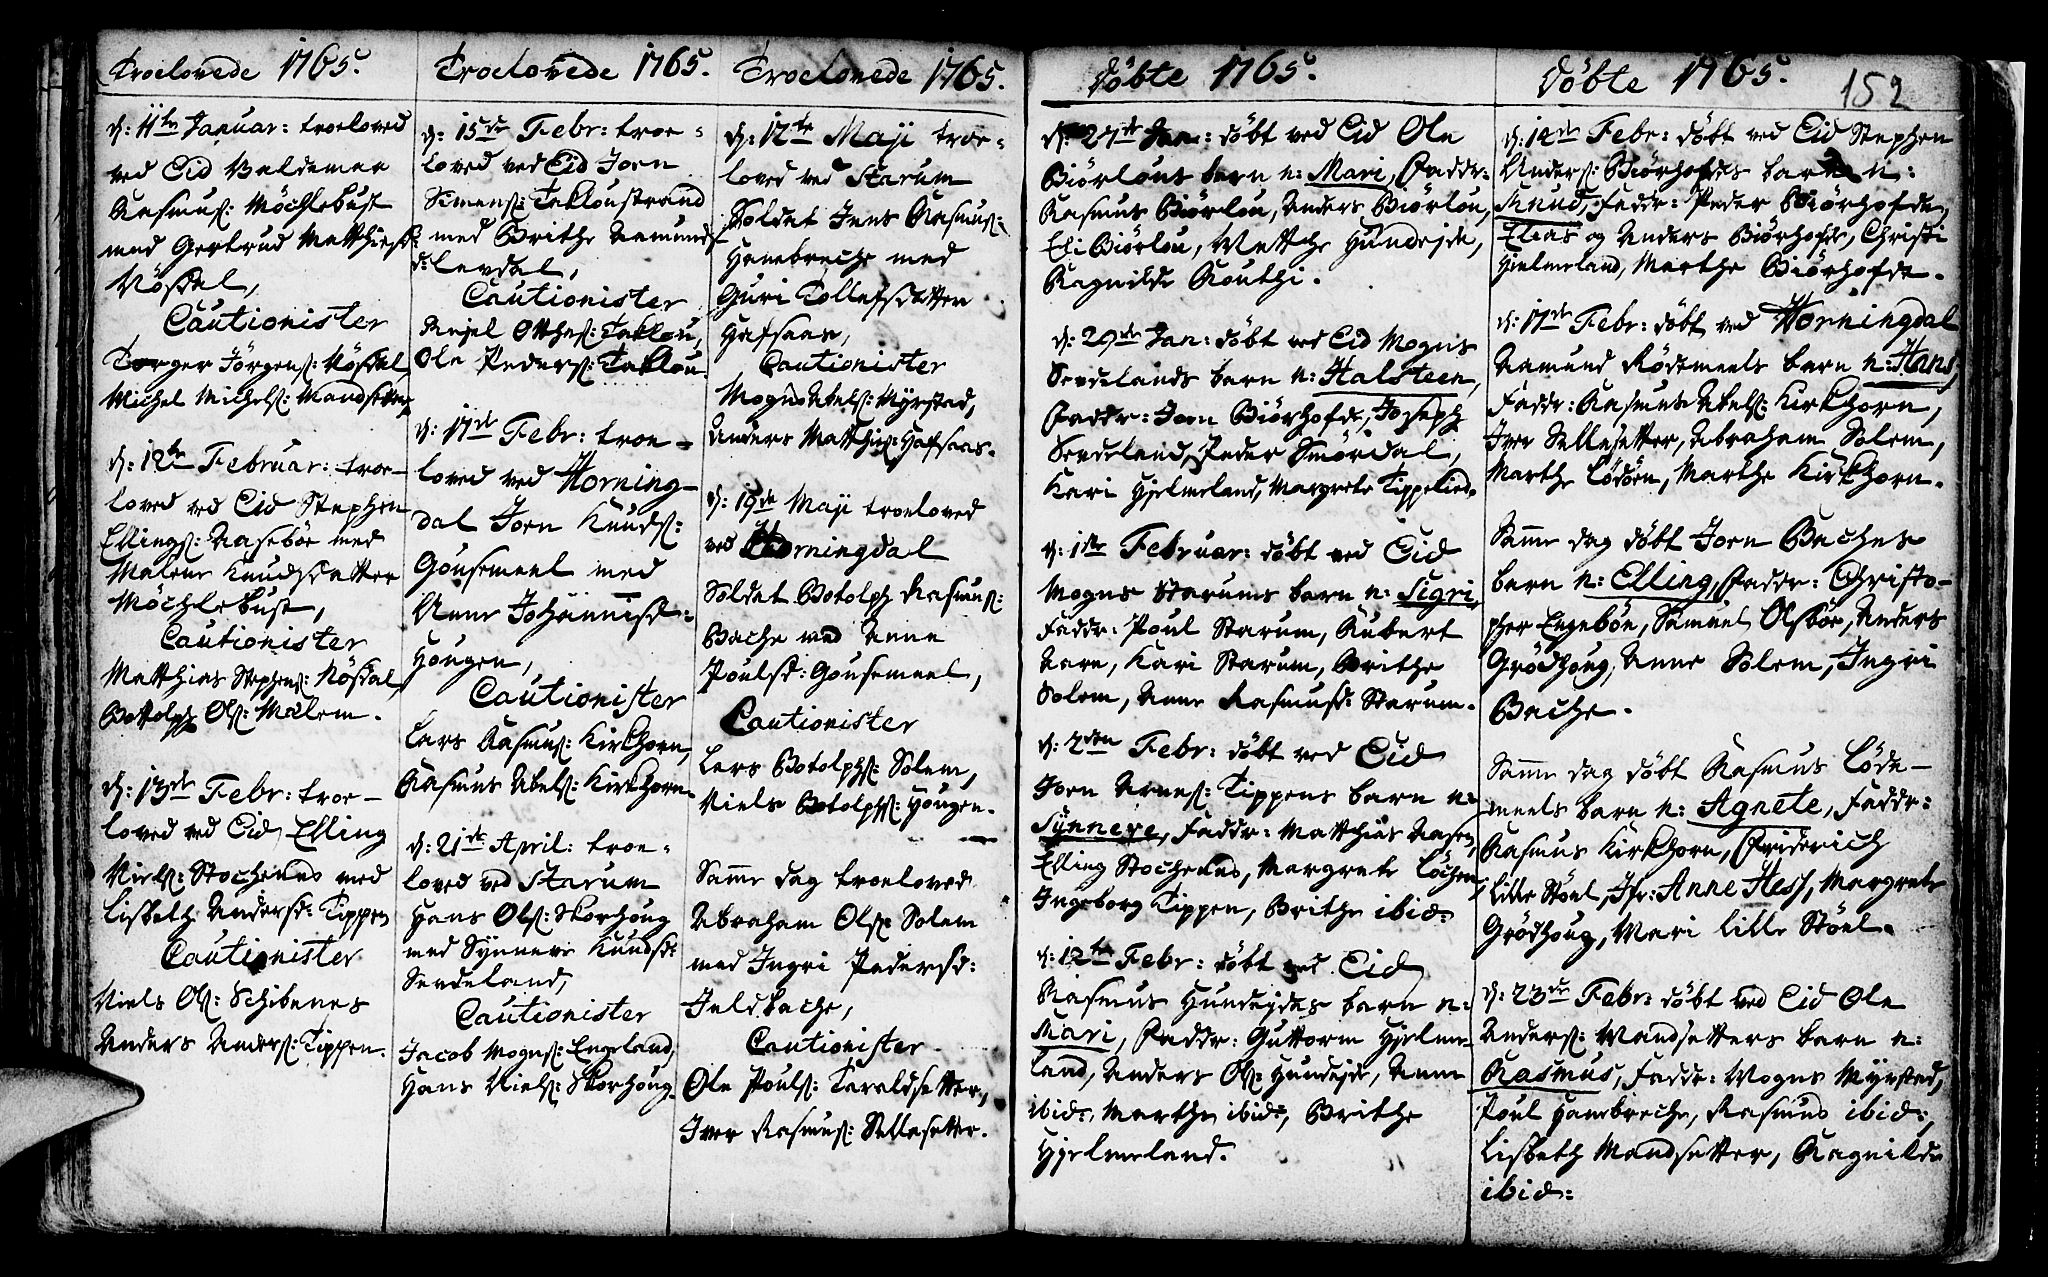 Troelovede 1765.
d: 11te Januar: troeloved
ved Eid Baldemar
Rasmus: Möchlebust
med Gertrud Matthiesd:
Nösdal,
Cautionister
Torger Jörgens: Nösdal,
Michel Michels: Mandsetter
d: 12te Februar: troe-
loved ved Eid Stephen
Ellings: Aaseböe med
Malene Knudsdatter
Möchlebust,
Cautionister
Matthias Stephens: Nösdal,
Bottolph Ols: Mælem.
d: 13de Febr: troe-
loved ved Eid Elling
Niels: Stochenes med
Lisbeth Andersd: Tippen
Cautionister
Niels Ols: Schibenes
Anders Anders: Tippen.
Troelovede 1765.
d: 15de Febr: troe-
loved ved Eid Jorn
Simens: Takloustrand
med Brithe Aamunds
d: Levdal,
Cautionister
Mejel Otthes: Taklou,
Ole Peders: Taklou
d: 17de Febr: troe-
loved ved Horning-
dal Jorn Knuds:
Gousemeel med
Anne Johannisd:
Hougen,
Cautionister
Lars Rasmus: Kirkhorn,
Rasmus Abels: Kirkhorn.
d: 21de April: troe-
loved ved Starum
Hans Ols: Skorhoug
med Synneve Knudsd:
Sevdeland,
Cautionister
Jacob Mogns: Engeland,
Hans Niels: Skorhoug.
Troelovede 1765.
d: 12te Maji troe-
loved ved Starum
Soldat Jens Rasmus:
Hanebreche med
Guri Tollefsdatter
Hafsaas,
Cautionister
Mogns Abels: Myrstad,
Anders Matthis: Hafsaas.
d: 19de Maji troeloved
ved Horningdal
Soldat Botolph Rasmus:
Bache med Anne
Poulsd: Gousemeel,
Cautionister
Lars Botolphs: Solem,
Niels Botolphs: Hougen.
Samme dag troeloved
Abraham Ols: Solem
med Ingri Pedersd:
Indbache,
Cautionister
Ole Pouls: Taraldsetter,
Iver Rasmus: Sellesetter.
Döbte 1765.
d: 27de Jan: döbt ved Eid Ole
Biörlous barn n: Mari, Faddr:
Rasmus Biörlou, Anders Biörlou,
Eli Biörlou, Mettche Hundejde,
Ragnilde Routhi.
d: 29de Jan: döbt ved Eid Mogns
Sevdelands barn n: Halsteen,
Faddr: Jorn Biörhofde, Joseph
Sevdeland, Peder Smördal,
Kari Hjelmeland, Margrete Tippelied.
d: 1ste Februar: döbt ved Eid
Mogns Starums barn n: Sigri,
Faddr: Poul Starum, Rubert
Aarn, Kari Starum, Brithe
Solem, Anne Rasmusd: Starum.
d: 2den Febr: döbt ved Eid
Jorn Arnes: Tippens barn n:
Synneve, Faddr: Matthias Aasen,
Elling Stochenes, Margrete Löchen,
Ingeborg Tippen, Brithe ibid:
d: 12te Febr: döbt ved Eid
Rasmus Hundejdes barn n:
Mari, Faddr: Guttorm Hjelme-
land, Anders Ols: Hundejde, Anne
ibid: Marthe ibid:, Brithe
Hjelmeland.
Döbte 1765.
152
d: 12de Febr: döbt ved Eid Stephen
Anders: Biörhofdes barn n:
Knud, Faddr: Peder Biörhofde,
Elias og Anders Biörhofde, Christi
Hjelmeland, Marthe Biörhofde.
d: 17de Febr: döbt ved Horningdal
Aamund Rödemeels barn n: Hans,
Faddr: Rasmus Abels: Kirkhorn,
Iver Sellesetter, Abraham Solem,
Marthe Lödöen, Marthe Kirkhorn.
Samme dag döbt Jorn Baches
barn n: Elling, Faddr: Christo-
pher Engeböe, Samuel Olsböe, Anders
Grödhoug, Anne Solem, Ingri
Bache.
Samme dag döbt Rasmus Löde-
meels barn n: Agnete, Faddr:
Rasmus Kirkhorn, Friderich
Lille Stöel, Jfr: Anne Hess, Margrete
Grödhoug, Mari Lille Stöel.
d: 23de Febr: döbt ved Eid Ole
Anders: Mandsetters barn n:
Rasmus, Faddr: Mogns Myrstad,
Poul Hanebreche, Rasmus ibid:,
Lisbeth Mandsetter, Ragnilde
ibid: